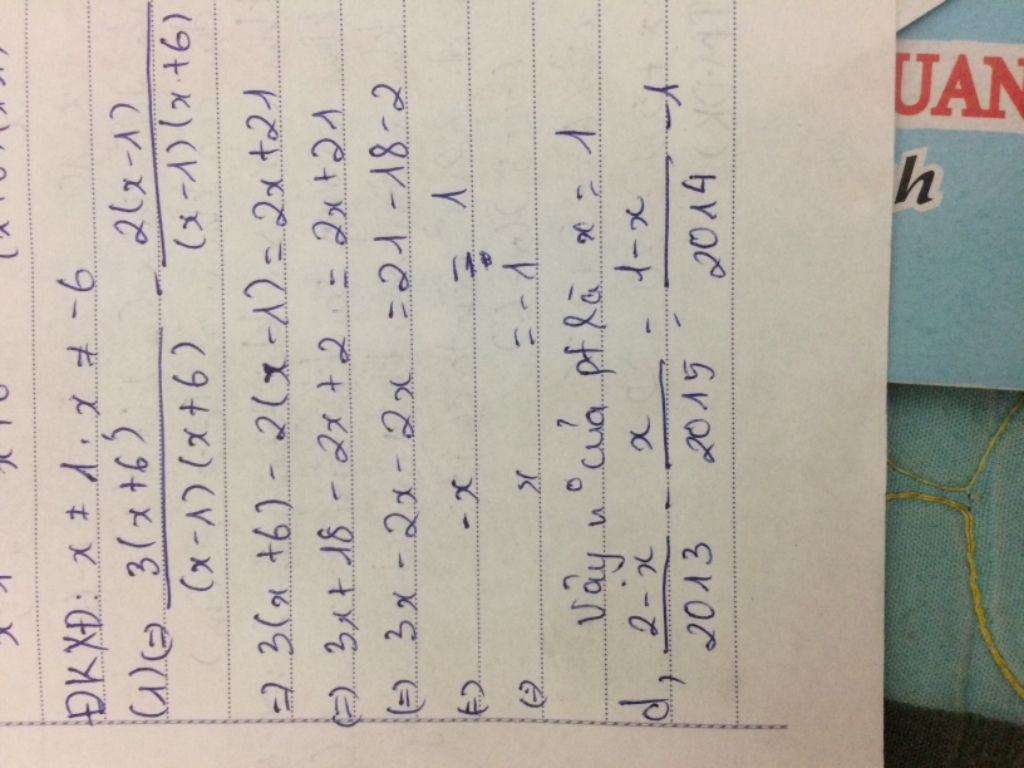 ĐKXĐ: x ≠ 1, x ≠ -6
(1) (=) 3(x+6) / (x-1)(x+6) - 2(x-1) / (x-1)(x+6)
=) 3(x+6) - 2(x-1) = 2x+21
(=) 3x+18 - 2x+2 = 2x+21
(=) 3x - 2x - 2x = 21 - 18 - 2
(=) -x = 1
(=) x = -1
Vậy n° của pt là x = 1
d, 2-x / 2013 - x / 2015 - 1-x / 2014 - 1
UAN
h